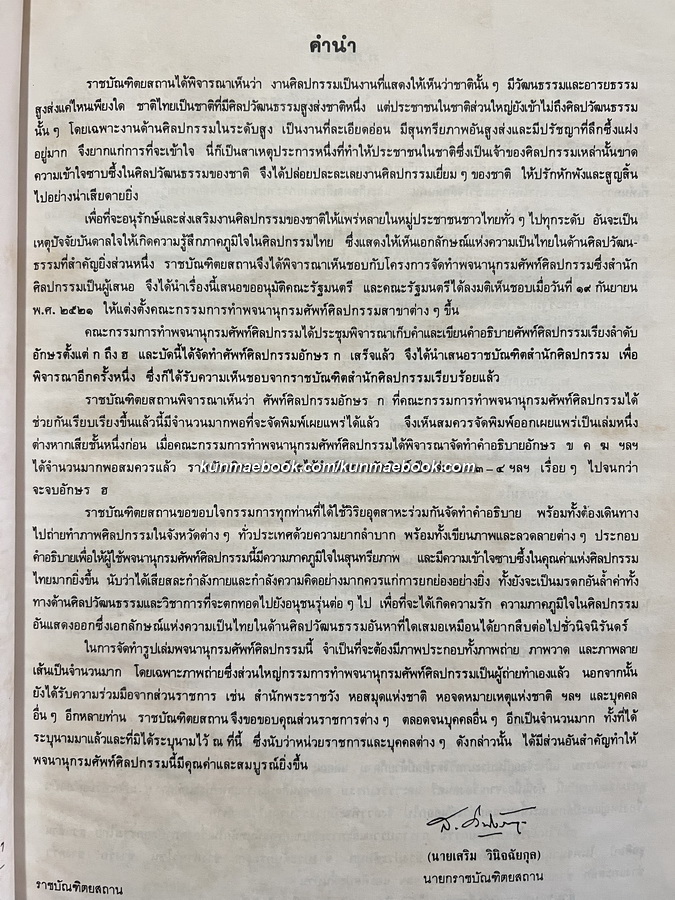 คำนำ
ราชบัณฑิตยสถานได้พิจารณาเห็นว่า งานศิลปกรรมเป็นงานที่แสดงให้เห็นว่าชาตินั้น ๆ มีวัฒนธรรมและอารยธรรม
สูงส่งแค่ไหนเพียงใด ชาติไทยเป็นชาติที่มีศิลปวัฒนธรรมสูงส่งชาติหนึ่ง แต่ประชาชนในชาติส่วนใหญ่ยังเข้าไม่ถึงศิลปวัฒนธรรม
นั้น ๆ โดยเฉพาะงานด้านศิลปกรรมในระดับสูง เป็นงานที่ละเอียดอ่อน มีสุนทรียภาพอันสูงส่งและมีปรัชญาที่ลึกซึ้งแฝง
อยู่มาก จึงยากแก่การที่จะเข้าใจ นี่ก็เป็นสาเหตุประการหนึ่งที่ทำให้ประชาชนในชาติซึ่งเป็นเจ้าของศิลปกรรมเหล่านั้นขาด
ความเข้าใจซาบซึ้งในศิลปวัฒนธรรมของชาติ จึงได้ปล่อยปละละเลยงานศิลปกรรมเยี่ยม ๆ ของชาติ ให้ปรักหักพังและสูญสิ้น
ไปอย่างน่าเสียดายยิ่ง
เพื่อที่จะอนุรักษ์และส่งเสริมงานศิลปกรรมของชาติให้แพร่หลายในหมู่ประชาชนชาวไทยทั่ว ๆ ไปทุกระดับ อันจะเป็น
เหตุปัจจัยบันดาลใจให้เกิดความรู้สึกภาคภูมิใจในศิลปกรรมไทย ซึ่งแสดงให้เห็นเอกลักษณ์แห่งความเป็นไทยในด้านศิลปวัฒน-
ธรรมที่สำคัญยิ่งส่วนหนึ่ง ราชบัณฑิตยสถานจึงได้พิจารณาเห็นชอบกับโครงการจัดทำพจนานุกรมศัพท์ศิลปกรรมซึ่งสำนัก
ศิลปกรรมเป็นผู้เสนอ จึงได้นำเรื่องนี้เสนอขออนุมัติคณะรัฐมนตรี และคณะรัฐมนตรีได้ลงมติเห็นชอบเมื่อวันที่ ๑๙ กันยายน
พ.ศ. ๒๕๒๑ ให้แต่งตั้งคณะกรรมการทำพจนานุกรมศัพท์ศิลปกรรมสาขาต่าง ๆ ขึ้น
คณะกรรมการทำพจนานุกรมศัพท์ศิลปกรรมได้ประชุมพิจารณาเก็บคำและเขียนคำอธิบายศัพท์ศิลปกรรมเรียงลำดับ
อักษรตั้งแต่ ก ถึง ฮ และบัดนี้ได้จัดทำศัพท์ศิลปกรรมอักษร ก เสร็จแล้ว จึงได้นำเสนอราชบัณฑิตสำนักศิลปกรรม เพื่อ
พิจารณาอีกครั้งหนึ่ง ซึ่งก็ได้รับความเห็นชอบจากราชบัณฑิตสำนักศิลปกรรมเรียบร้อยแล้ว
ราชบัณฑิตยสถานพิจารณาเห็นว่า ศัพท์ศิลปกรรมอักษร ก ที่คณะกรรมการทำพจนานุกรมศัพท์ศิลปกรรมได้
ช่วยกันเรียบเรียงขึ้นแล้วนี้มีจำนวนมากพอที่จะจัดพิมพ์เผยแพร่ได้แล้ว จึงเห็นสมควรจัดพิมพ์ออกเผยแพร่เป็นเล่มหนึ่ง
ต่างหากเสียชั้นหนึ่งก่อน เมื่อคณะกรรมการทำพจนานุกรมศัพท์ศิลปกรรมได้พิจารณาจัดทำคำอธิบายอักษร ข ค ฆ ฯลฯ
ได้จำนวนมากพอสมควรแล้ว รา kunmaebook.com/kunmaebook.com ๓ – ๔ ฯลฯ เรื่อย ๆ ไปจนกว่า
จะจบอักษร ฮ
ราชบัณฑิตยสถานขอขอบใจกรรมการทุกท่านที่ได้ใช้วิริยอุตสาหะร่วมกันจัดทำคำอธิบาย พร้อมทั้งต้องเดินทาง
ไปถ่ายทำภาพศิลปกรรมในจังหวัดต่าง ๆ ทั่วประเทศด้วยความยากลำบาก พร้อมทั้งเขียนภาพและลวดลายต่าง ๆ ประกอบ
คำอธิบายเพื่อให้ผู้ใช้พจนานุกรมศัพท์ศิลปกรรมนี้มีความภาคภูมิใจในสุนทรียภาพ และมีความเข้าใจซาบซึ้งในคุณค่าแห่งศิลปกรรม
ไทยมากยิ่งขึ้น นับว่าได้เสียสละกำลังกายและกำลังความคิดอย่างมากควรแก่การยกย่องอย่างยิ่ง ทั้งยังจะเป็นมรดกอันล้ำค่าทั้ง
ทางด้านศิลปวัฒนธรรมและวิชาการที่จะตกทอดไปยังอนุชนรุ่นต่อ ๆ ไป เพื่อที่จะได้เกิดความรัก ความภาคภูมิใจในศิลปกรรม
อันแสดงออกซึ่งเอกลักษณ์แห่งความเป็นไทยในด้านศิลปวัฒนธรรมอันหาที่ใดเสมอเหมือนได้ยากสืบต่อไปชั่วนิจนิรันดร์
ในการจัดทำรูปเล่มพจนานุกรมศัพท์ศิลปกรรมนี้ จำเป็นที่จะต้องมีภาพประกอบทั้งภาพถ่าย ภาพวาด และภาพลาย
เส้นเป็นจำนวนมาก โดยเฉพาะภาพถ่ายซึ่งส่วนใหญ่กรรมการทำพจนานุกรมศัพท์ศิลปกรรมเป็นผู้ถ่ายทำเองแล้ว นอกจากนั้น
ยังได้รับความร่วมมือจากส่วนราชการ เช่น สำนักพระราชวัง หอสมุดแห่งชาติ หอจดหมายเหตุแห่งชาติ ฯลฯ และบุคคล
อื่น ๆ อีกหลายท่าน ราชบัณฑิตยสถานจึงขอขอบคุณส่วนราชการต่าง ๆ ตลอดจนบุคคลอื่น ๆ อีกเป็นจำนวนมาก ทั้งที่ได้
ระบุนามมาแล้วและที่มิได้ระบุนามไว้ ณ ที่นี้ ซึ่งนับว่าหน่วยราชการและบุคคลต่าง ๆ ดังกล่าวนั้น ได้มีส่วนอันสำคัญทำให้
พจนานุกรมศัพท์ศิลปกรรมนี้มีคุณค่าและสมบูรณ์ยิ่งขึ้น
(นายเสริม วินิจฉัยกุล)
นายกราชบัณฑิตยสถาน
ราชบัณฑิตยสถาน